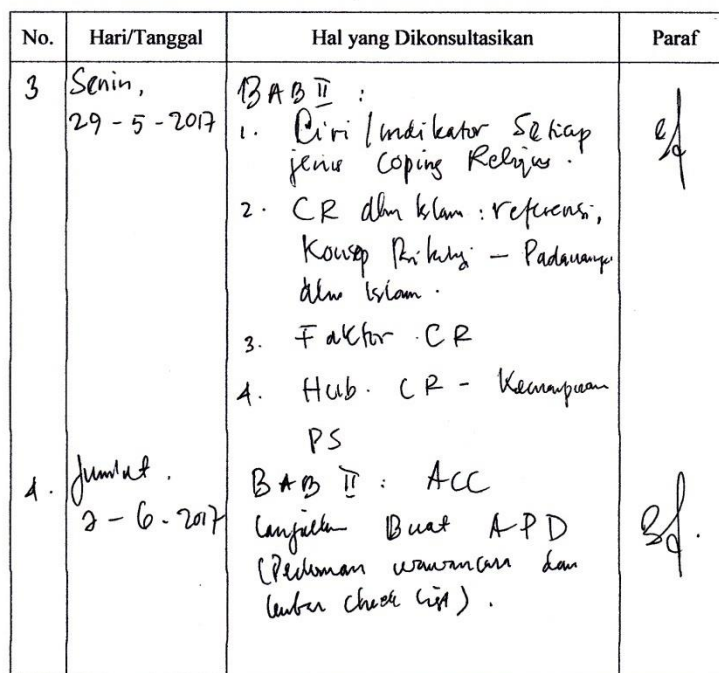 No. Hari/Tanggal Hal yang Dikonsultasikan Paraf
3 Senin, BAB II :
29 - 5 - 2017 1. Ciri / indikator Setiap
jenis Coping Religius.
2. CR dlm Islam : referensi,
Konsep Psikologi - Padanannya
dlm Islam.
3. Faktor CR
4. Hub. CR - Kemampuan
PS
4. Jum'at. BAB II : ACC
2 - 6 - 2017 Lanjutkan Buat APD
(Pedoman wawancara dan
lembar check list).